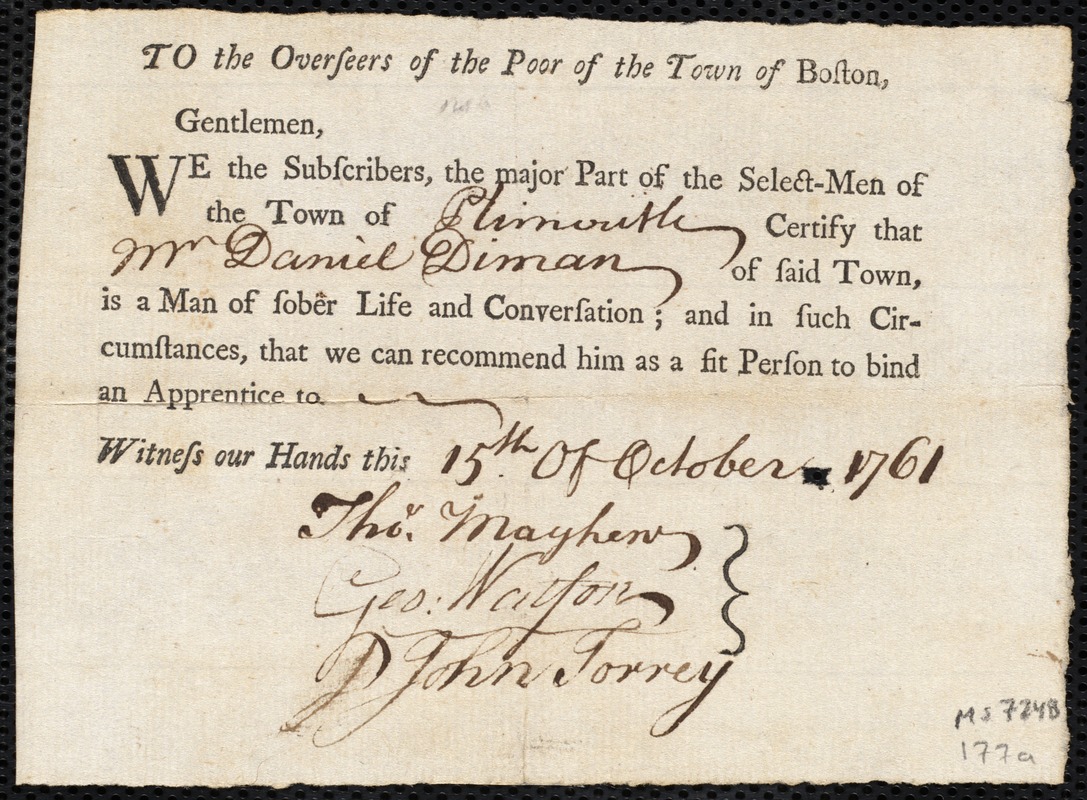 TO the Overſeers of the Poor of the Town of Boſton,
Gentlemen,
WE the Subſcribers, the major Part of the Select-Men of
the Town of Plimouth Certify that
Mr Daniel Diman of ſaid Town,
is a Man of ſober Life and Converſation ; and in ſuch Cir-
cumſtances, that we can recommend him as a fit Perſon to bind
an Apprentice to
Witneſs our Hands this 15th Of October 1761
Thos. Mayhew
Geo: Watſon
John Torrey
MS 7248
177a